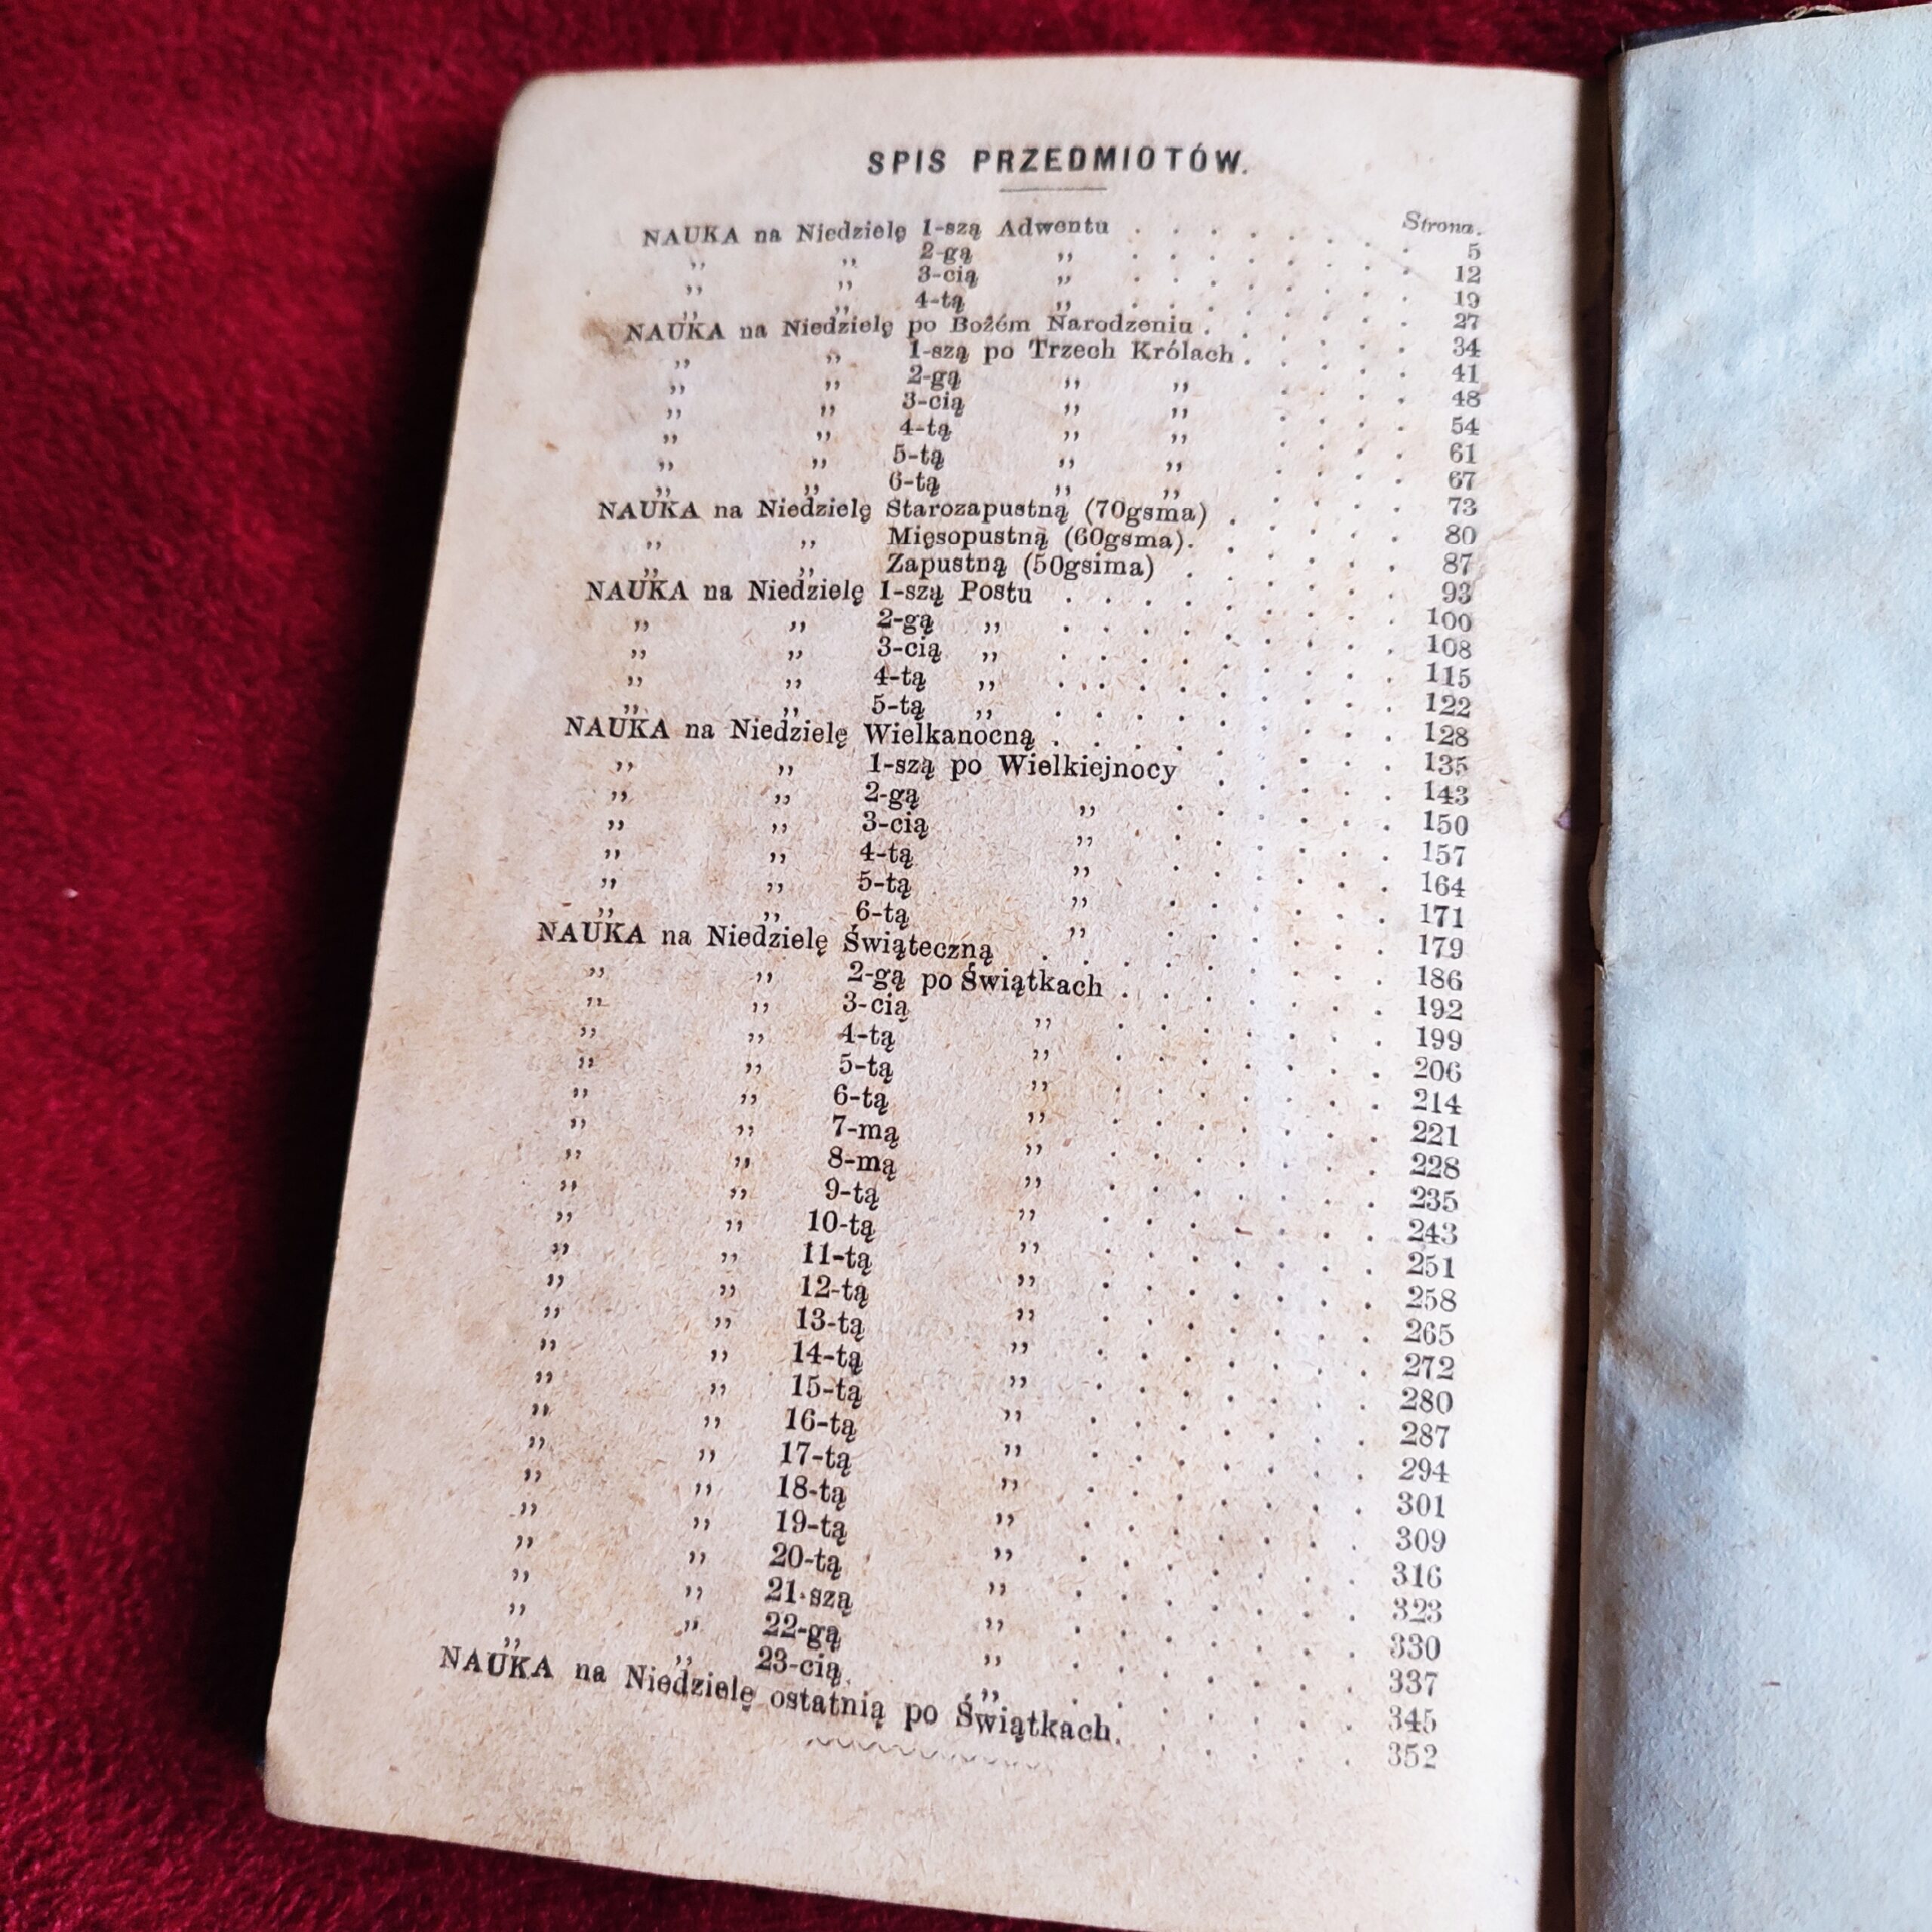 SPIS PRZEDMIOTÓW.
Strona.
NAUKA na Niedzielę 1-szą Adwentu . . . . . . . 5
„ „ 2-gą „ . . . . . . . 12
„ „ 3-cią „ . . . . . . . 19
„ „ 4-tą „ . . . . . . . 27
NAUKA na Niedzielę po Bożém Narodzeniu . . . . . 34
„ „ 1-szą po Trzech Królach . . . . . 41
„ „ 2-gą „ „ . . . . 48
„ „ 3-cią „ „ . . . . 54
„ „ 4-tą „ „ . . . . 61
„ „ 5-tą „ „ . . . . 67
„ „ 6-tą „ „ . . . . 73
NAUKA na Niedzielę Starozapustną (70gsma) . . . . . 80
„ „ Mięsopustną (60gsma) . . . . . . 87
„ „ Zapustną (50gsima) . . . . . . 93
NAUKA na Niedzielę 1-szą Postu . . . . . . . . . 100
„ „ 2-gą „ . . . . . . . . . 108
„ „ 3-cią „ . . . . . . . . . 115
„ „ 4-tą „ . . . . . . . . . 122
„ „ 5-tą „ . . . . . . . . . 128
NAUKA na Niedzielę Wielkanocną . . . . . . . . . 135
„ „ 1-szą po Wielkiejnocy . . . . . 143
„ „ 2-gą „ . . . . . . 150
„ „ 3-cią „ . . . . . . 157
„ „ 4-tą „ . . . . . . 164
„ „ 5-tą „ . . . . . . 171
„ „ 6-tą „ . . . . . . 179
NAUKA na Niedzielę Świąteczną . . . . . . . . . 186
„ „ 2-gą po Świątkach . . . . . . . 192
„ „ 3-cią „ . . . . . . . 199
„ „ 4-tą „ . . . . . . . 206
„ „ 5-tą „ . . . . . . . 214
„ „ 6-tą „ . . . . . . . 221
„ „ 7-mą „ . . . . . . . 228
„ „ 8-mą „ . . . . . . . 235
„ „ 9-tą „ . . . . . . . 243
„ „ 10-tą „ . . . . . . . 251
„ „ 11-tą „ . . . . . . . 258
„ „ 12-tą „ . . . . . . . 265
„ „ 13-tą „ . . . . . . . 272
„ „ 14-tą „ . . . . . . . 280
„ „ 15-tą „ . . . . . . . 287
„ „ 16-tą „ . . . . . . . 294
„ „ 17-tą „ . . . . . . . 301
„ „ 18-tą „ . . . . . . . 309
„ „ 19-tą „ . . . . . . . 316
„ „ 20-tą „ . . . . . . . 323
„ „ 21-szą „ . . . . . . . 330
„ „ 22-gą „ . . . . . . . 337
„ „ 23-cią „ . . . . . . . 345
NAUKA na Niedzielę ostatnią po Świątkach . . . . . . 352